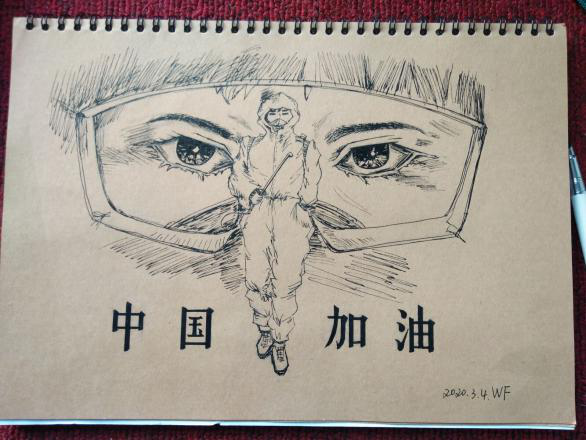 中国 加油
2020.3.4.WF